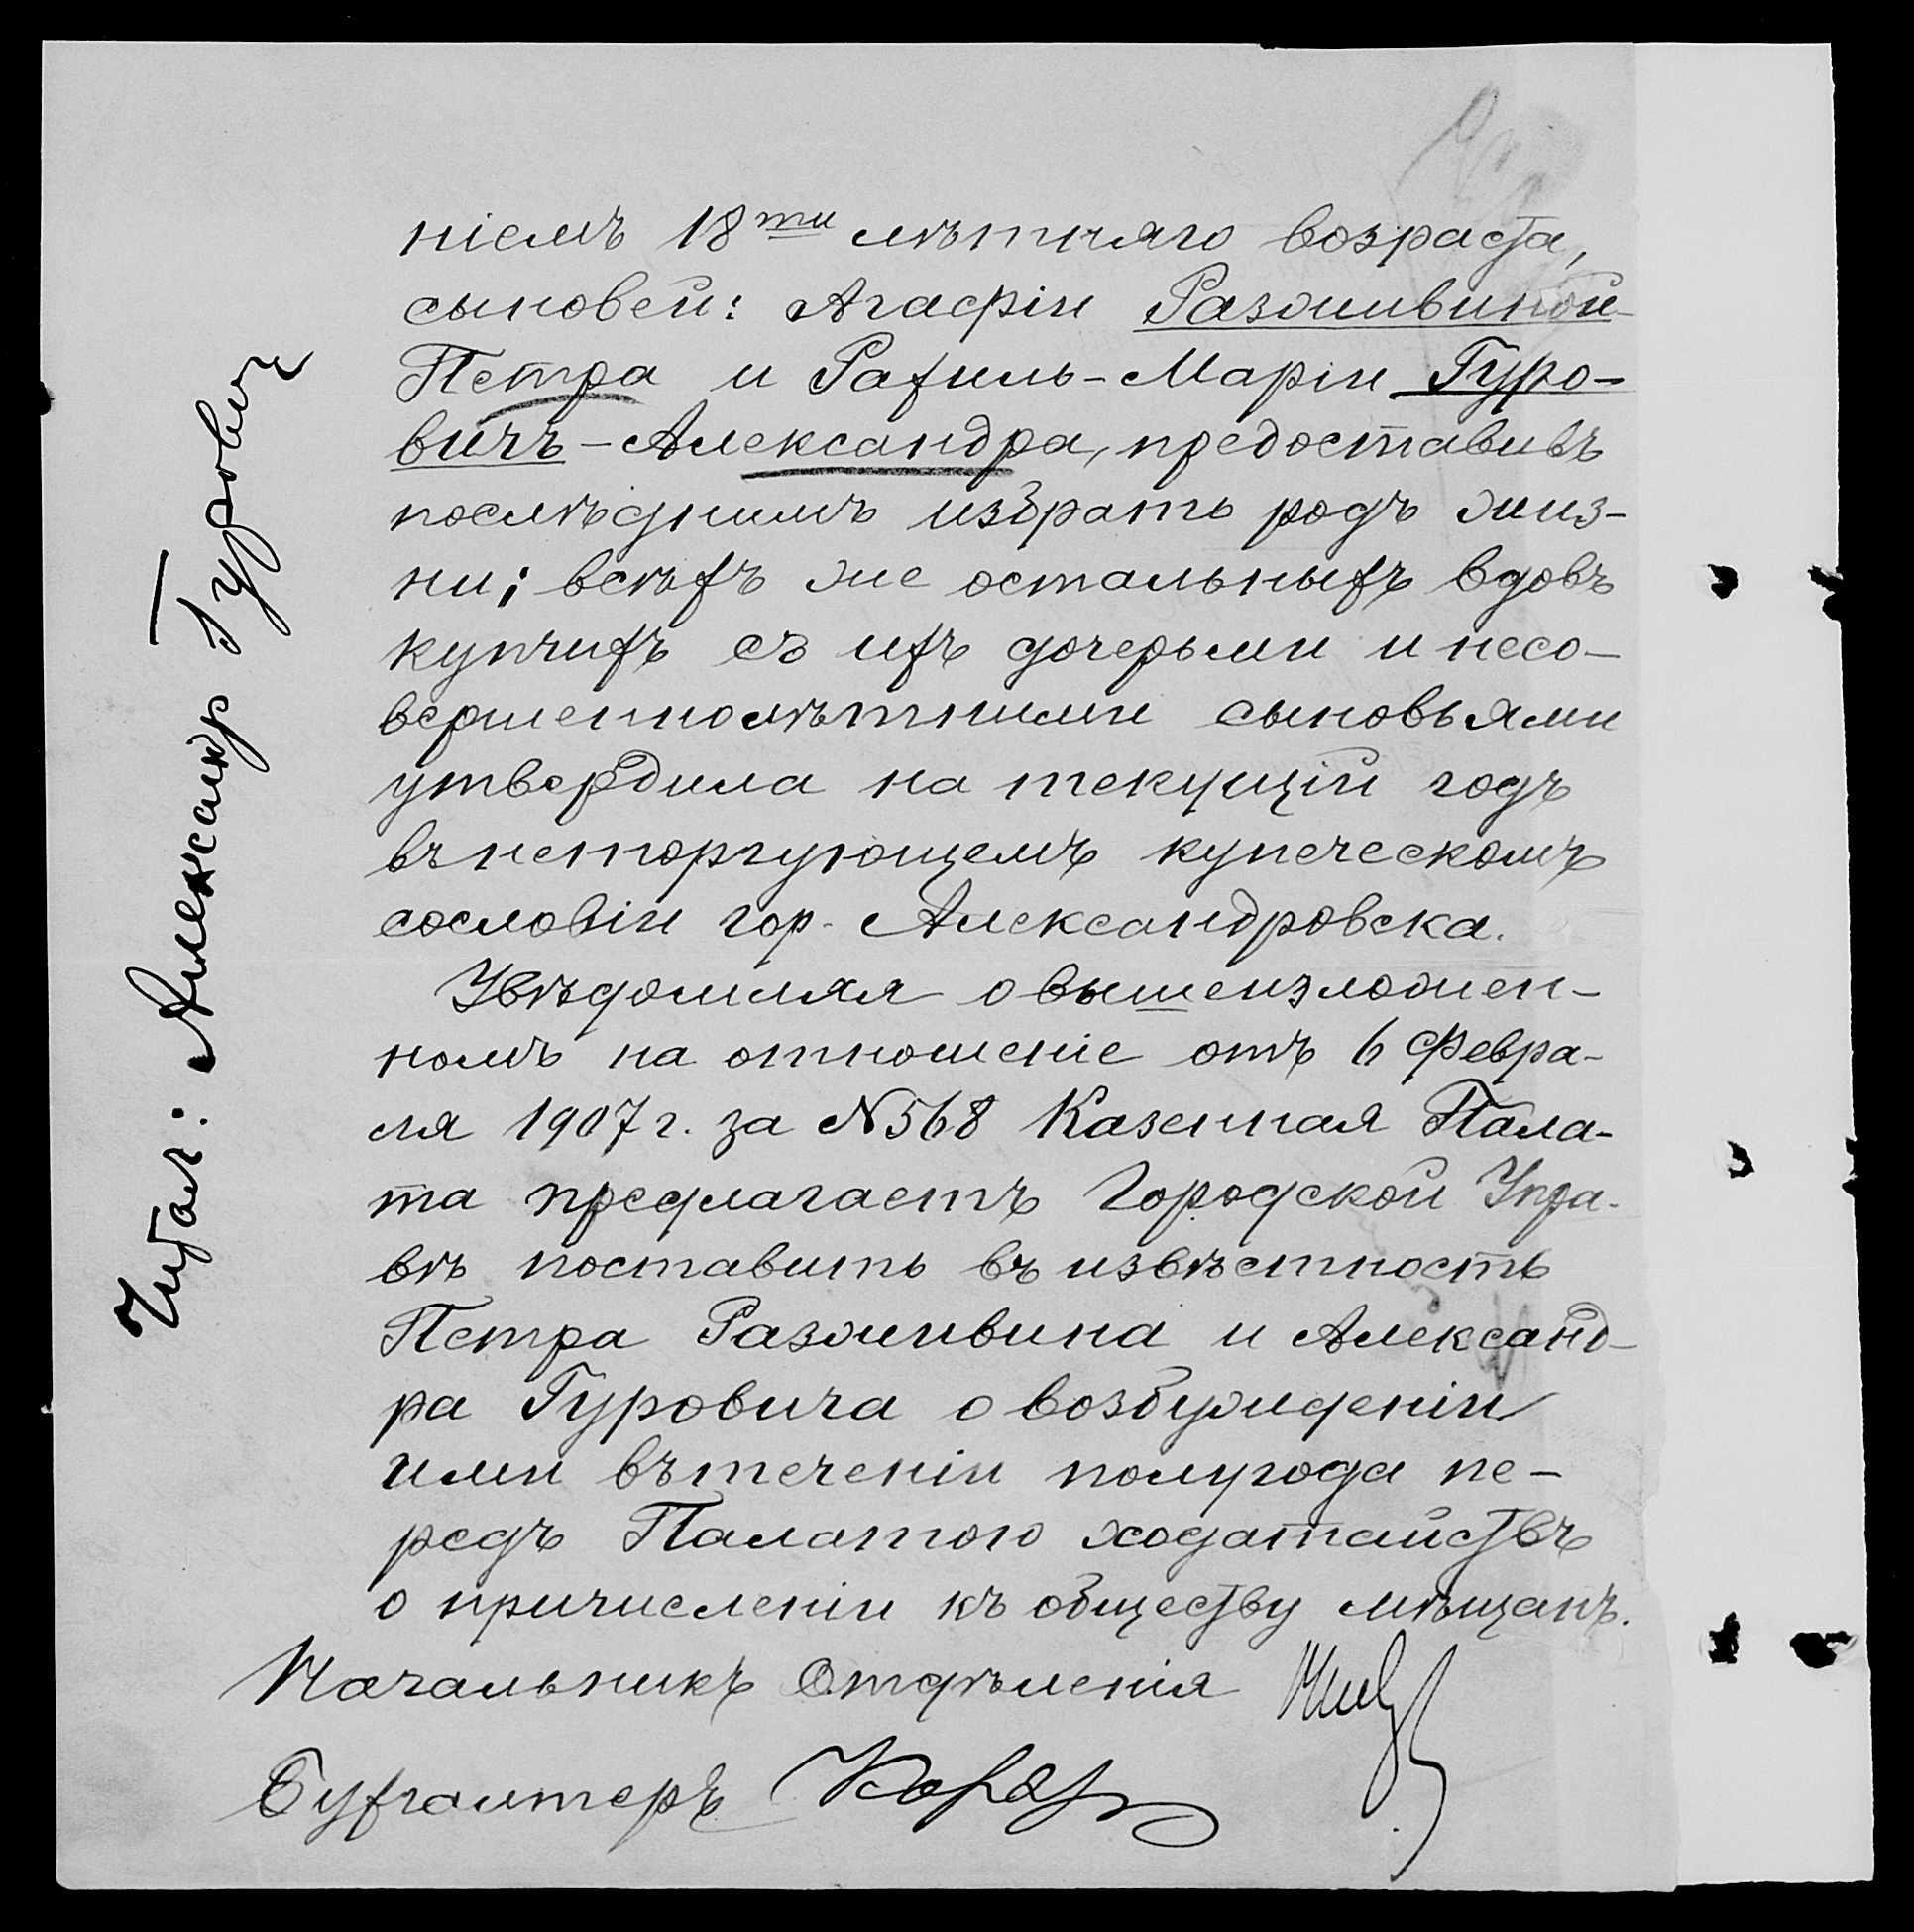 ніемъ 18ти лѣтняго возраста,
сыновей: Агафіи Разживиной-
Петра и Рахиль-Маріи Гуро-
вичъ-Александра, предоставивъ
послѣднимъ избрать родъ жиз-
ни; всѣхъ же остальныхъ вдовъ
купчихъ съ ихъ дочерьми и несо-
вершеннолѣтними сыновьями
утвердила на текущій годъ
въ неторгующемъ купеческомъ
сословіи гор. Александровска.
Увѣдомляя о вышеизложен-
номъ на отношеніе отъ 6 Февра-
ля 1907 г. за N568 Казенная Пала-
та предлагаетъ Городской Упра-
вѣ поставить въ извѣстность
Петра Разживина и Александ-
ра Гуровича о возбужденіи
ими въ теченіи полугода пе-
редъ Палатою ходатайствъ
о причисленіи къ обществу мѣщанъ.
Начальникъ Отдѣленія
Бухгалтеръ
Читал: Александр Гурович